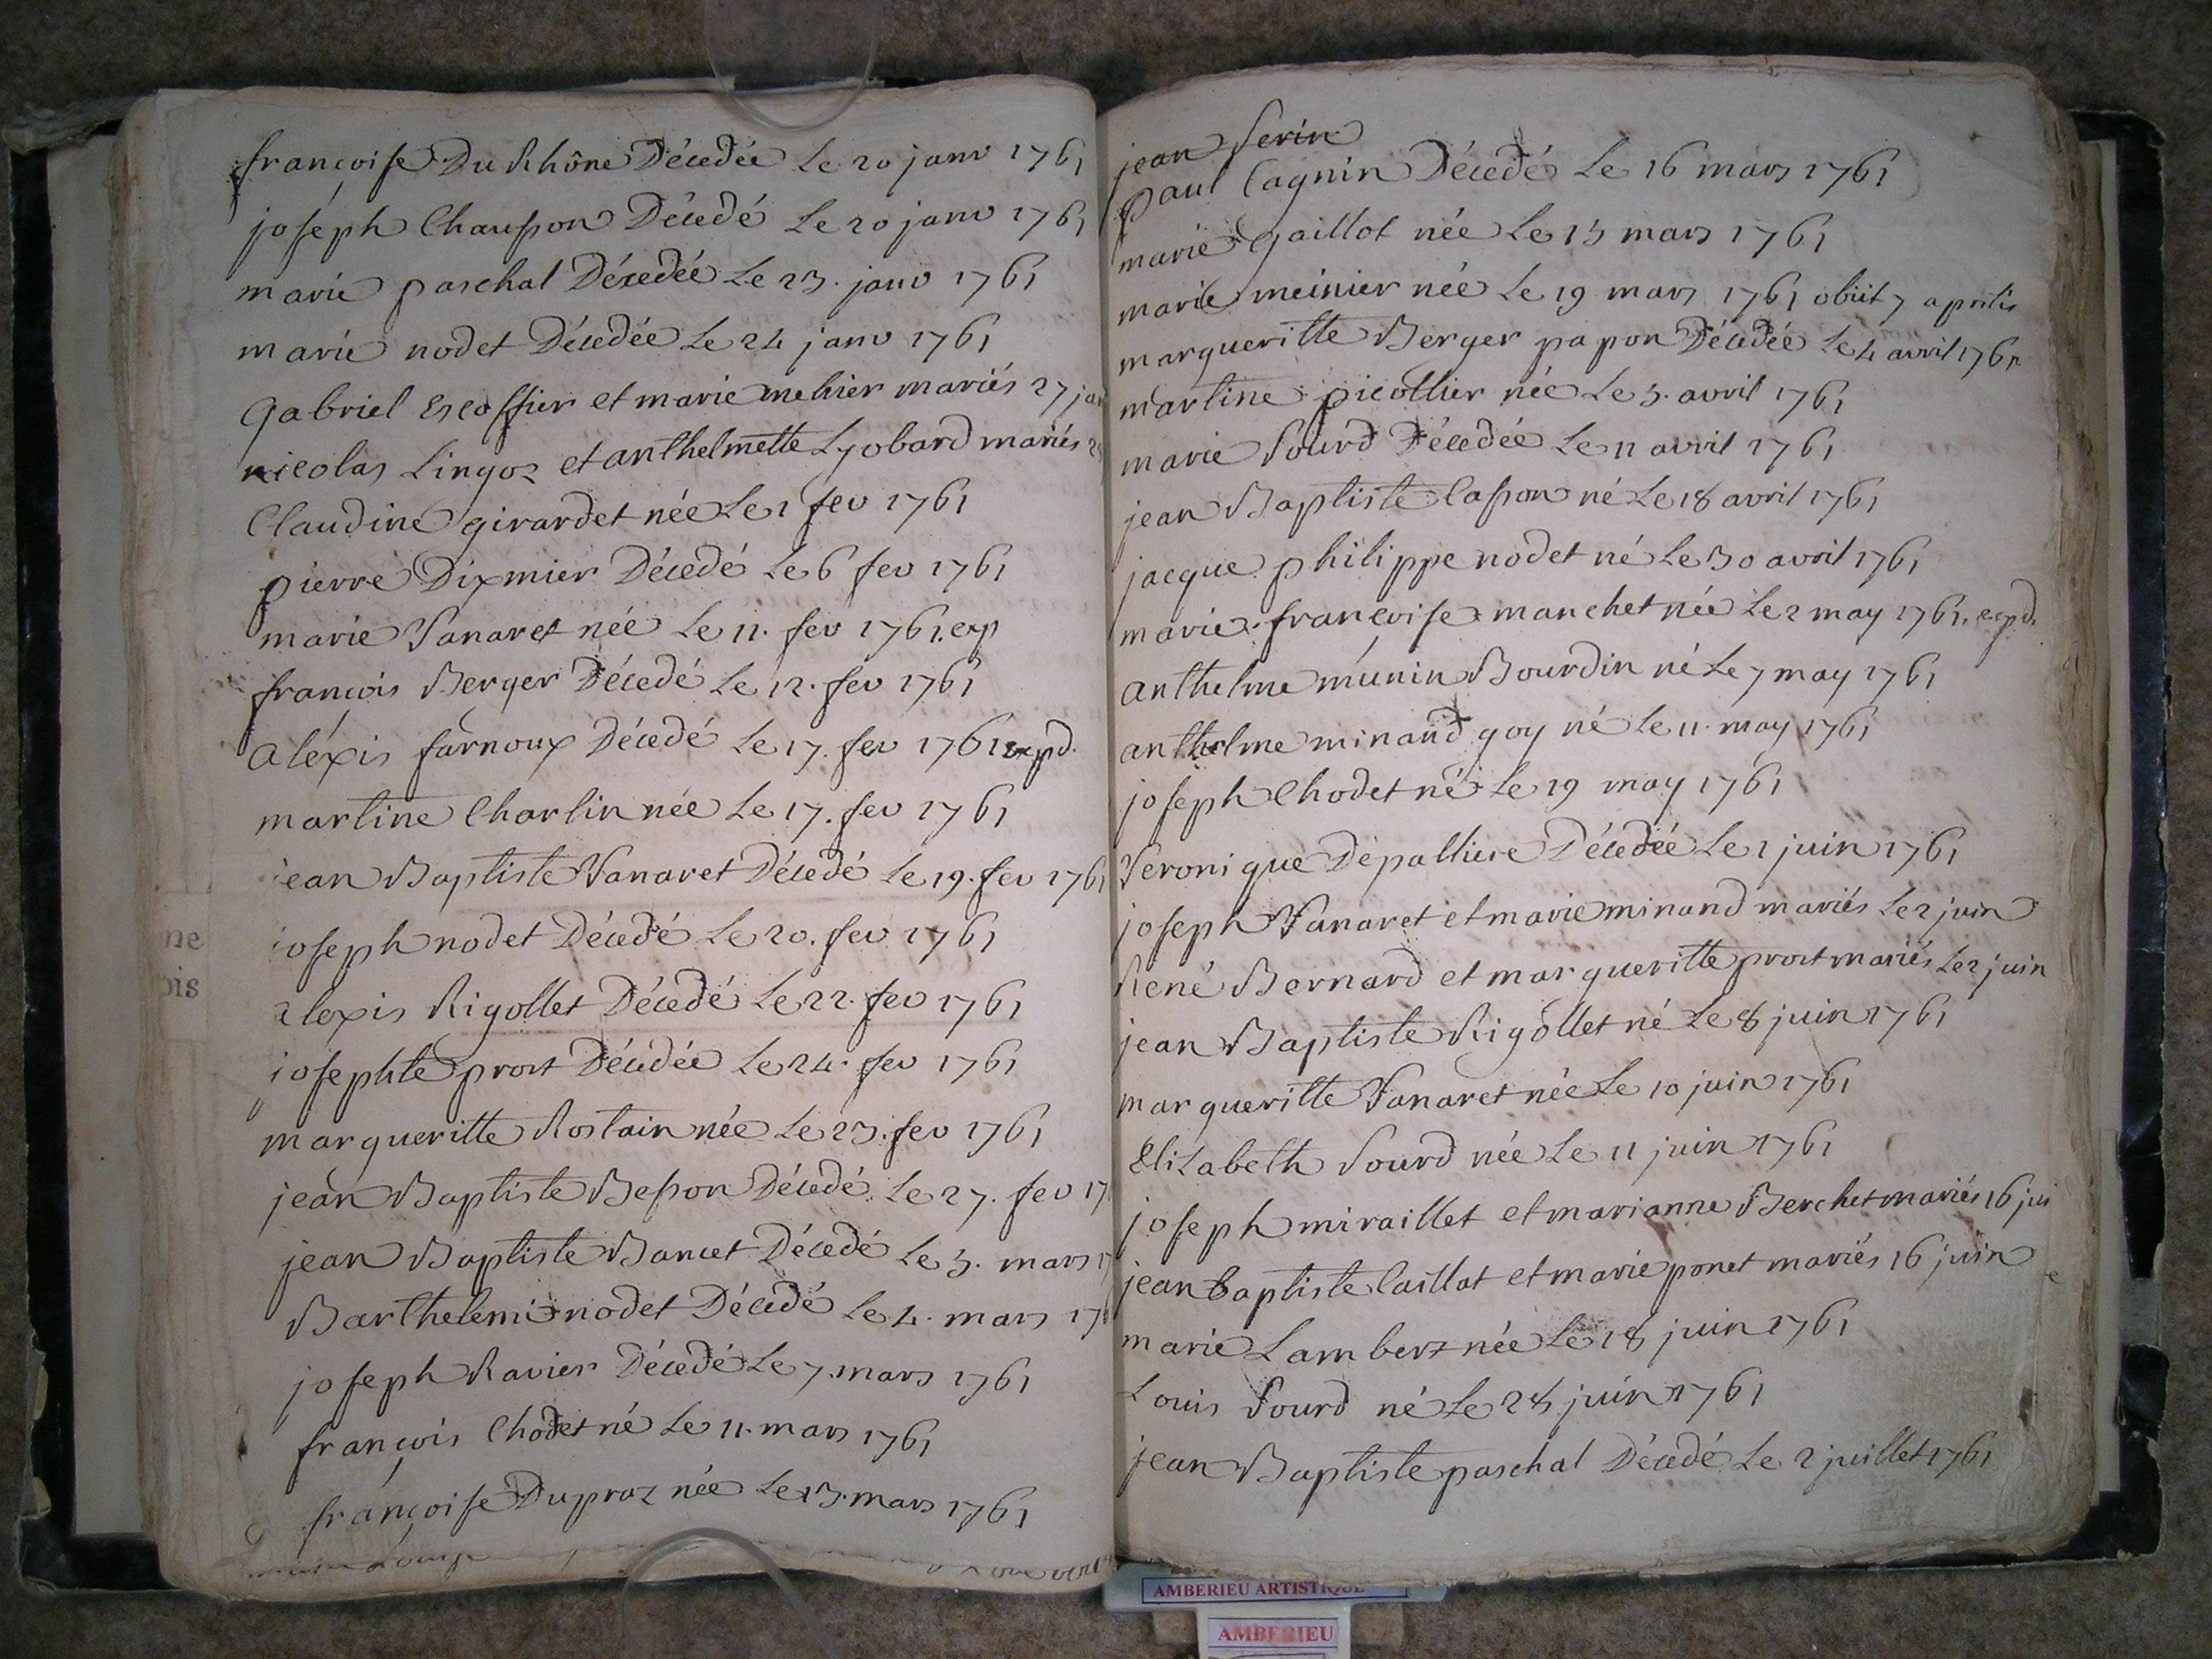 françoise Du Rhône Décedée Le 20 janv 1761
joseph Chausson Décedé Le 20 janv 1761
marie paschal Décedée Le 23. janv 1761
marie nodet Décedée Le 24 janv 1761
Gabriel Escoffier et marie mehier mariés 27 jan
nicolas Lingoz et anthelmette Lyobard mariés
Claudine girardet née Le 2 fev 1761
pierre Dixmier Décedé Le 6 fev 1761
marie Vanaret née Le 11. fev 1761. exp
françois Berger Décedé Le 12. fev 1761
Alexis farnoux Décedé Le 17. fev 1761 expd.
martine Charlin née Le 17. fev 1761
jean Baptiste Vanaret Décedé Le 19. fev 1761
joseph nodet Décedé Le 20. fev 1761
alexis Rigollet Décedé Le 22. fev 1761
josephte prost Décedée Le 24. fev 1761
margueritte Rostain née Le 23. fev 1761
jean Baptiste Besson Décedé Le 27. fev 17
jean Baptiste Bancet Décedé Le 3. mars 1
Barthelemi nodet Décedé Le 4. mars 176
joseph Ravier Décedé Le 7. mars 1761
françois Chodet né Le 11. mars 1761
françoise Dupraz née Le 13. mars 1761
jean Serin
paul Cagnin Décedé Le 16 mars 1761
marie Gaillot née Le 15 mars 1761
marie meinier née Le 19 mars 1761 obiit 7 aprilis
margueritte Berger papon Décedée Le 4 avril 1761
martine picollier née Le 5. avril 1761
marie Sourd Décedée Le 11 avril 1761
jean Baptiste Casson né Le 18 avril 1761
jacque philippe nodet né Le 30 avril 1761
marie françoise manchet née Le 2 may 1761. expd.
anthelme munin Bourdin né Le 7 may 1761
anthelme minand goy né Le 11. may 1761
joseph Chodet né Le 19 may 1761
Veronique Depalliere Décedée Le 1 juin 1761
joseph Vanaret et marie minand mariés Le 2 juin
René Bernard et margueritte prost mariés Le 2 juin
jean Baptiste Rigollet né Le 8 juin 1761
margueritte Vanaret née Le 10 juin 1761
Elizabeth Sourd née Le 11 juin 1761
joseph miraillet et marianne Berchet mariés 16 jui
jean baptiste Caillat et marie ponet mariés 16 juin
marie Lambert née Le 18 juin 1761
Louis Sourd né Le 28 juin 1761
jean Baptiste paschal Décedé Le 2 juillet 1761
ne
ois
AMBERIEU ARTISTIQUE
AMBERIEU